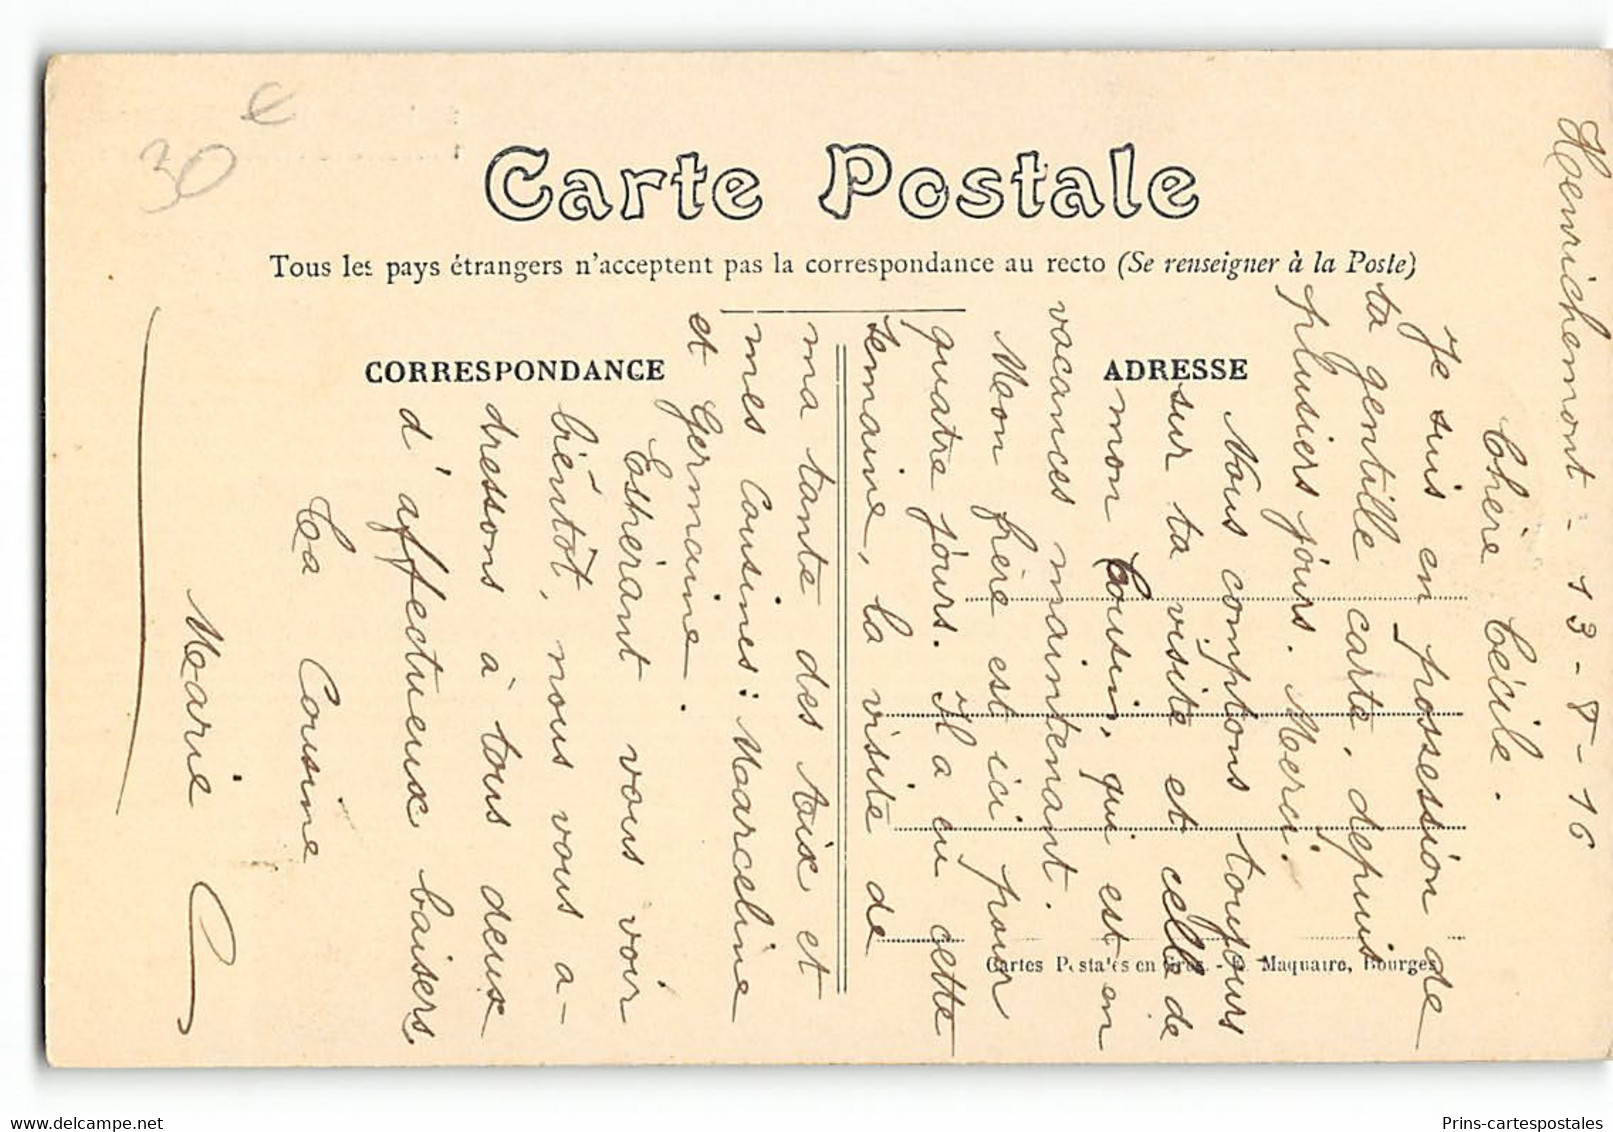 30 €
Carte Postale
Tous les pays étrangers n'acceptent pas la correspondance au recto (Se renseigner à la Poste)
CORRESPONDANCE
ADRESSE
Henrichemont - 13-8-16
Chère Cécile.
Je suis en possession de
ta gentille carte, depuis
plusiers jours. Merci.
Nous comptons toujours
sur ta visite et celle de
mon Cousin, qui est en
vacances maintenant.
Mon frère est ici pour
quatre jours. Il a eu cette
semaine, la visite de
ma tante des Aix et
mes Cousines: Marceline
et Germaine.
Espérant vous voir
bientôt, nous vous a-
dressons à tous deux
d'affectueux baisers
Ta Cousine
Marie
Cartes Postales en Gros. - Maquaire, Bourges
delcampe.net
Prins-cartespostales